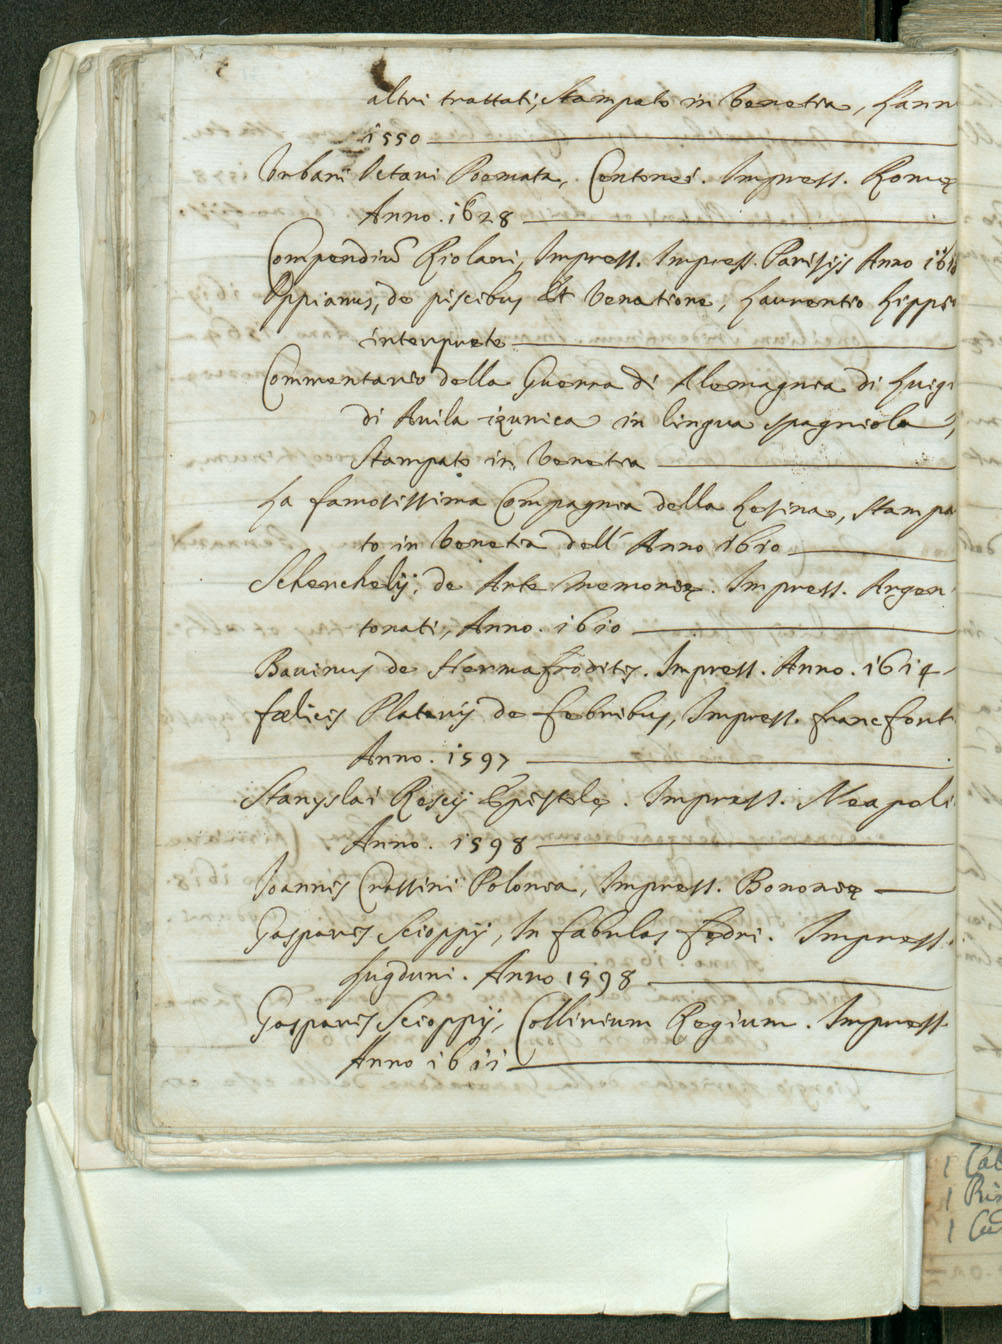 altri trattati, Stampato in Venetia, l'ann
1550
Urbani Octavi Poemata, Centones. Impress. Romę
Anno. 1628
Compendiũ Riolani, Impress. Impress. Parisijs Anno 1610
Oppianus, de piscibus Et Venatione, Laurentio Lippi
interprete
Commentario della Guerra di Alemagnia di Luigi
di Avila izunica in lingua spagniola,
Stampato in Venetia
La famosissima Compagnia della Lesina, stampa
to in Venetia dell' Anno 1610
Schenchelij, de Arte Memorię. Impress. Argen
tonati, Anno. 1610
Bavinus de Hermafroditis. Impress. Anno. 1614
fœlicis Platerij de febribus, Impress. francfort
Anno. 1597
Stanyslai Roscij Epistolę. Impress. Neapoli
Anno. 1598
Joannis Crassini Polonia, Impress. Bononię
Gasparis Scioppij, In fabulas fędri. Impress.
Lugduni. Anno 1598
Gasparis Scioppij, Collirium Regium. Impress
Anno 1611
1
1
1